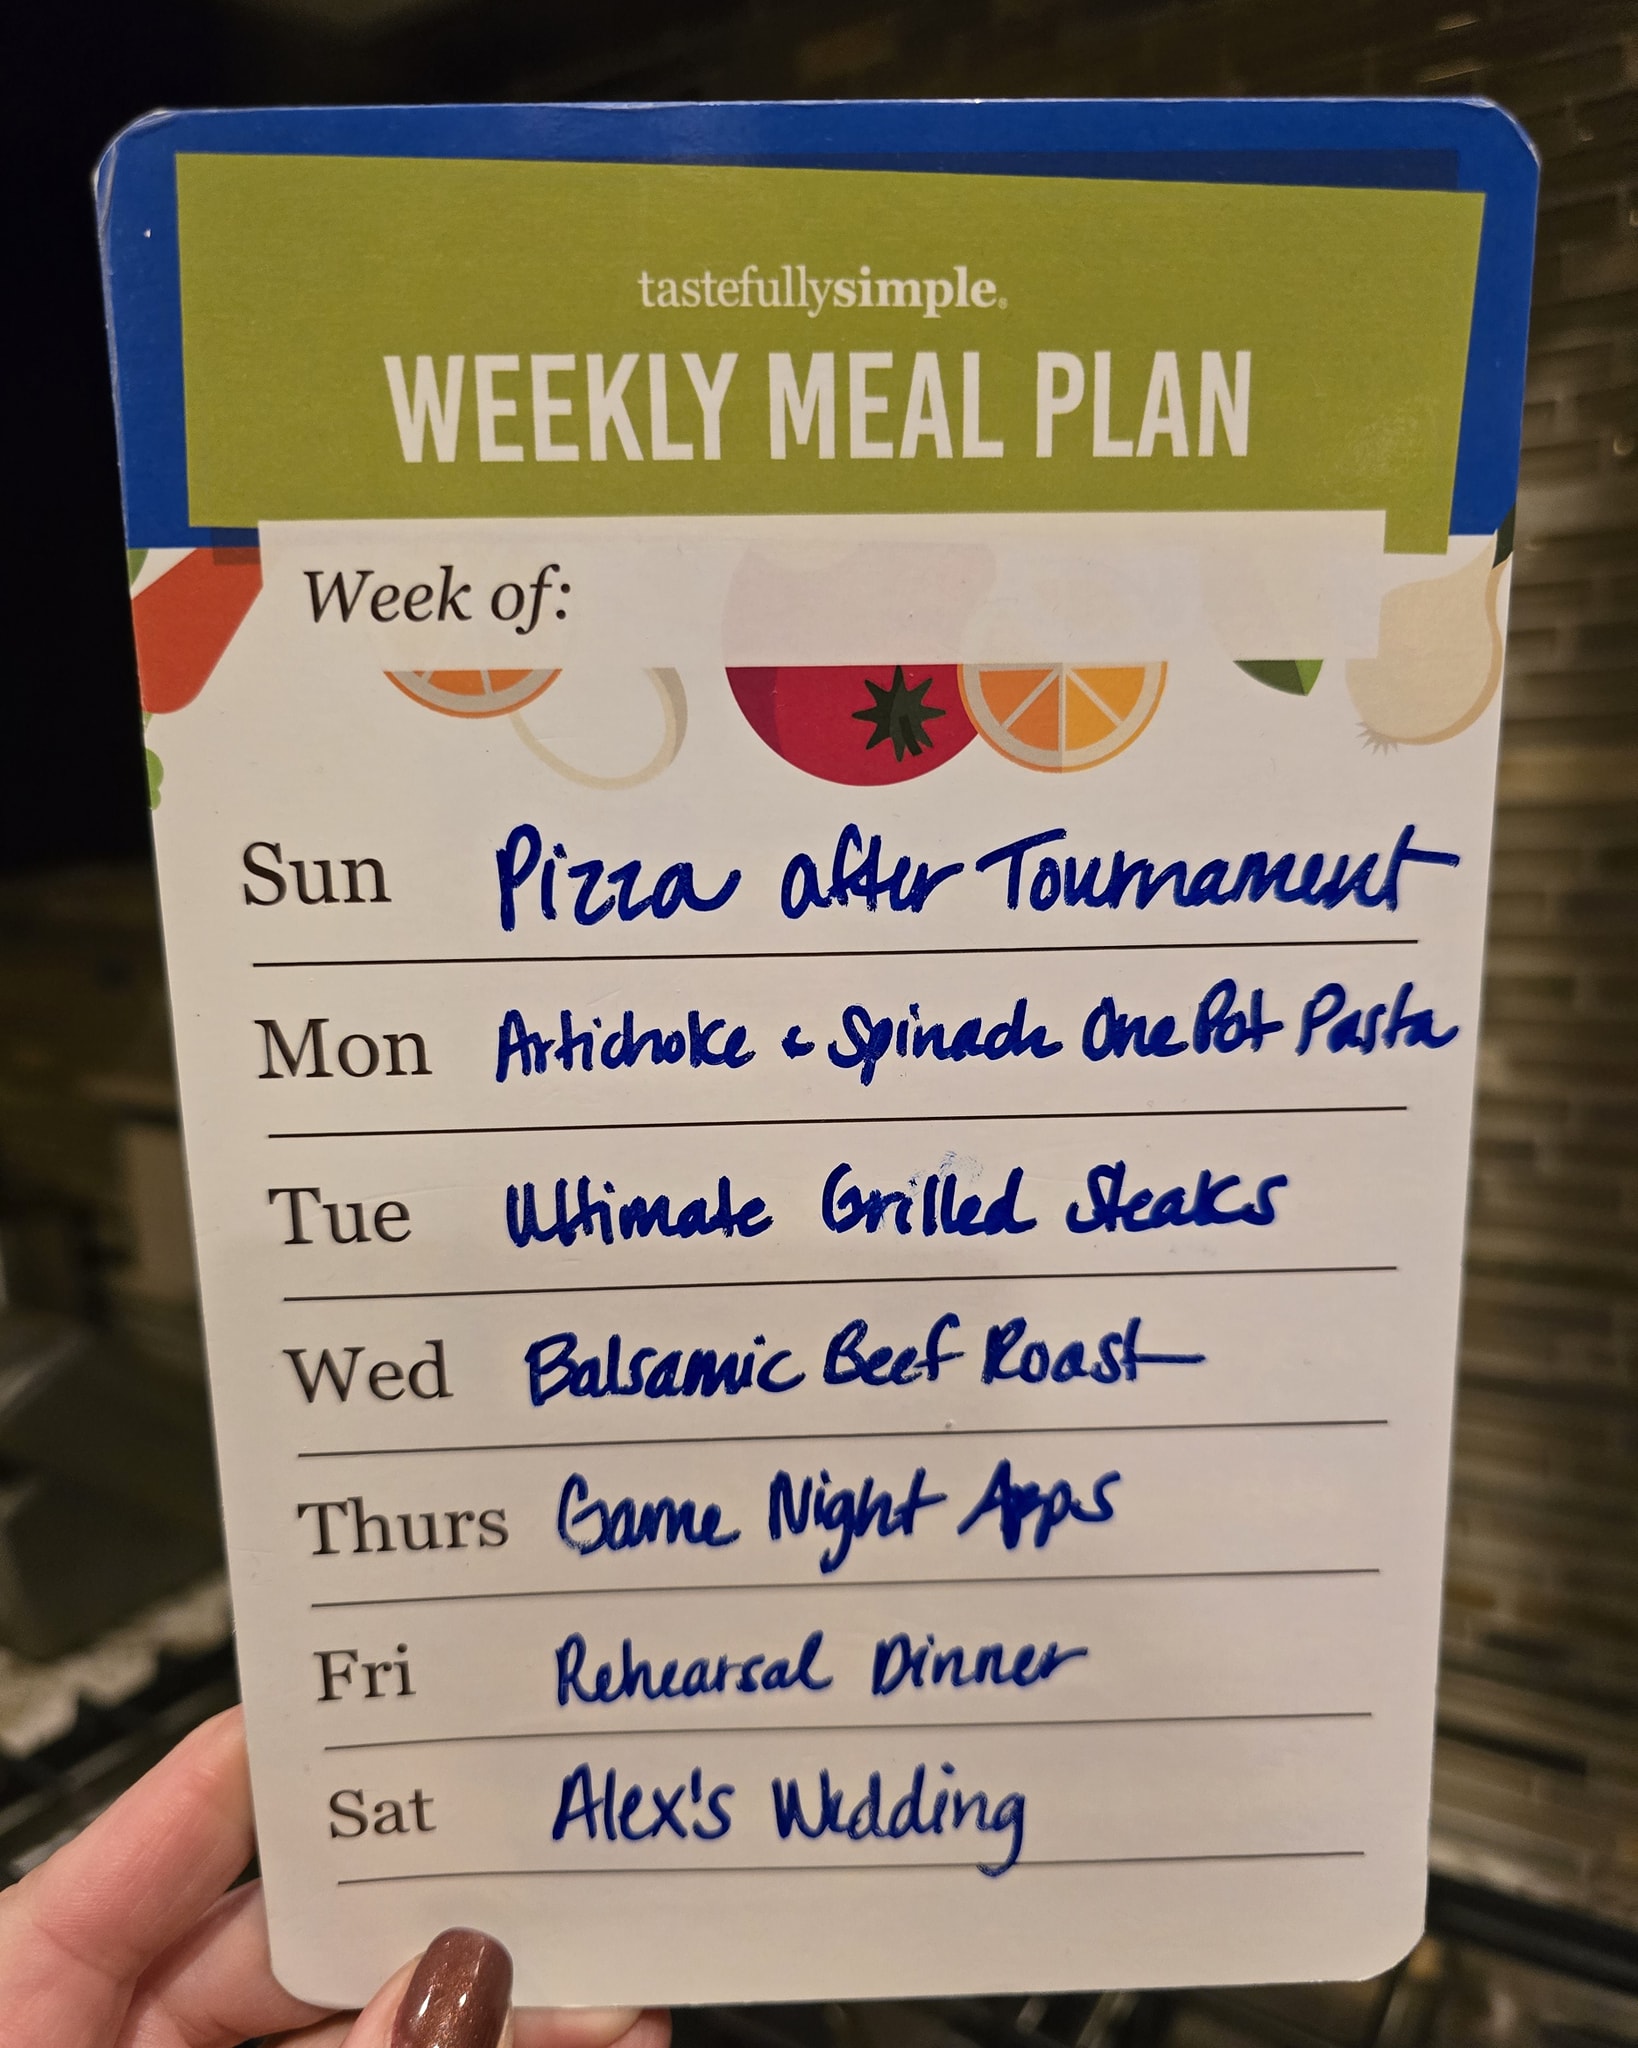 tastefullysimple®
WEEKLY MEAL PLAN
Week of:
Sun Pizza after Tournament
Mon Artichoke & Spinach One Pot Pasta
Tue Ultimate Grilled Steaks
Wed Balsamic Beef Roast
Thurs Game Night Apps
Fri Rehearsal Dinner
Sat Alex's Wedding